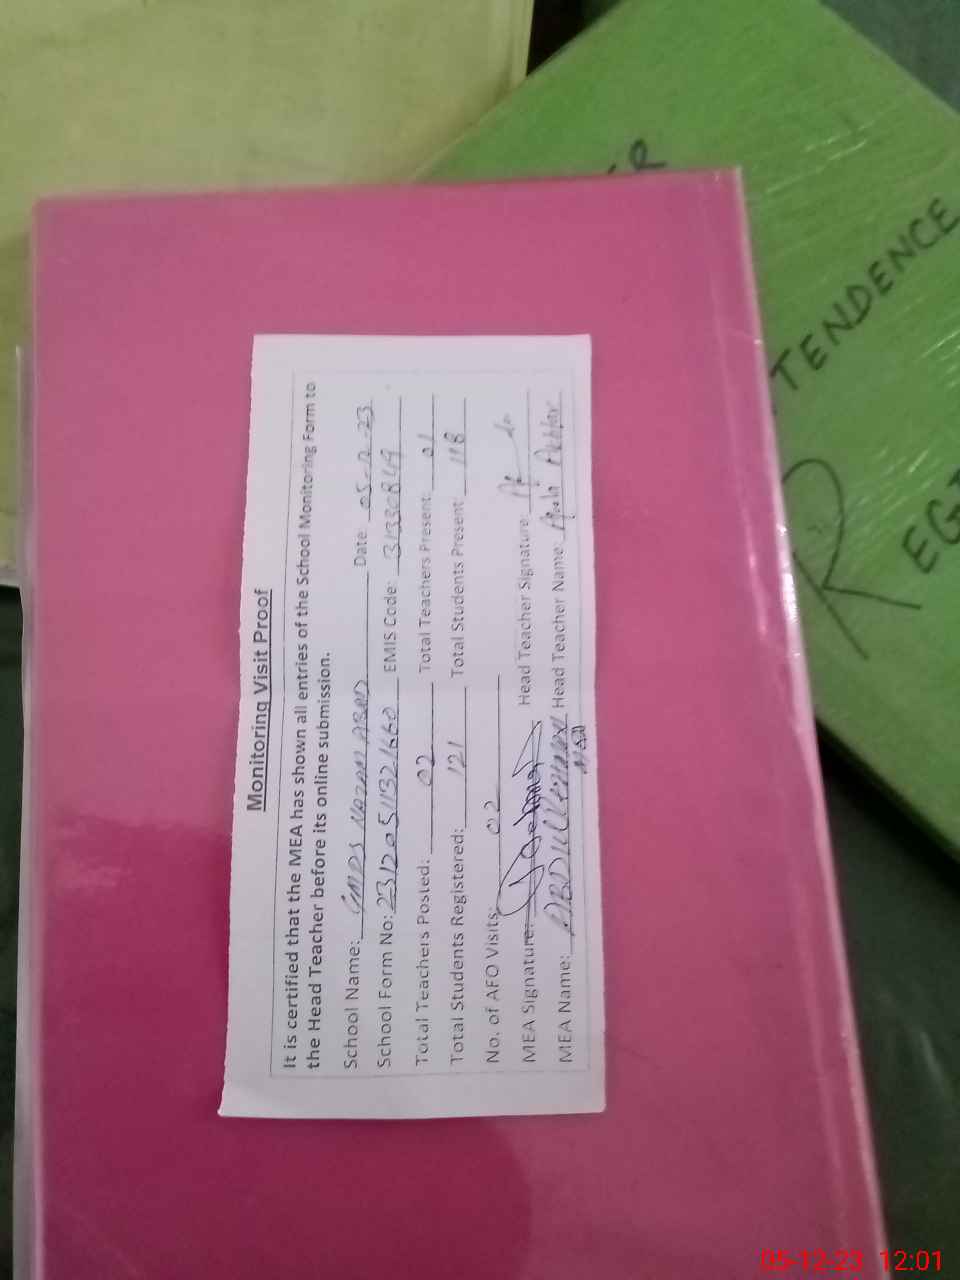 Monitoring Visit Proof
It is certified that the MEA has shown all entries of the School Monitoring Form to
the Head Teacher before its online submission.
School Name: GMPS Date: 05-12-23
School Form No: 23120511321660 EMIS Code: 31330849
Total Teachers Posted: 02 Total Teachers Present: 01
Total Students Registered: 121 Total Students Present: 118
No. of AFO Visits: 02
MEA Signature: Head Teacher Signature:
MEA Name: Head Teacher Name: Akhtar
MEA
TENDENCE
R
05-12-23 12:01